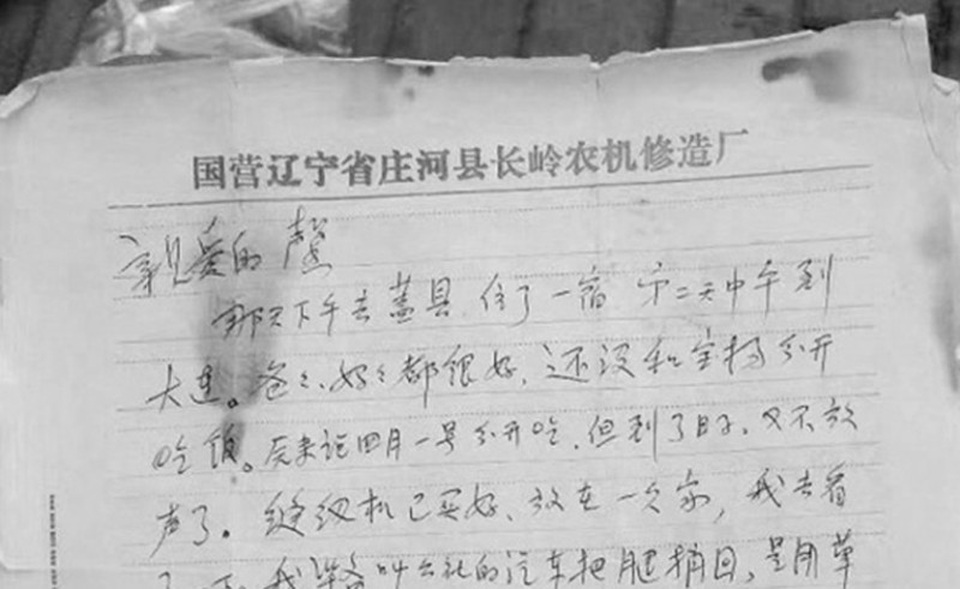 国营辽宁省庄河县长岭农机修造厂
亲爱的馨
那天下午去盖县住了一宿 第二天中午到
大连。爸々、妈々都很好,还没和宝杨分开
吃饭。原来说四月一号分开吃,但到了日子,又不放
声了。缝纫机已买好、放在一久家,我去看
了 我准备叫公社的汽车把腿捎回,是用草